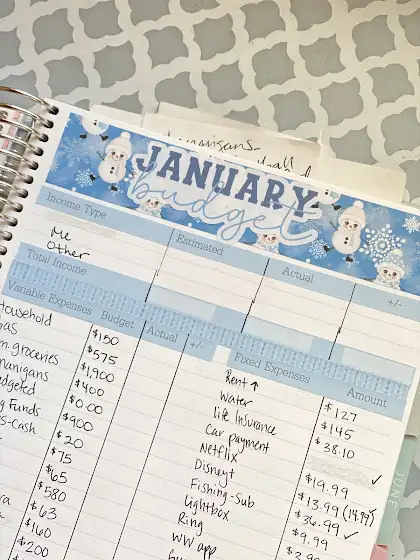 JANUARY
budget
Income Type
Estimated
Actual
+/-
Me
Other
Total Income
Variable Expenses Budget Actual +/-
ousehold
as
m. groceries
nanigans
dgeted
g Funds
s-cash
$150
$575
$1,900
$400
$0.00
$900
$20
$75
$65
$580
$63
$160
$200
Fixed Expenses Amount
Rent ↑
Water
life Insurance
Car payment
Netflix
Disney+
Fishing-Sub
Lightbox
Ring
WW app
$127
$145
$38.10
✓
$19.99
$13.99 (14.99)
$36.99 ✓
$9.99
JUNE